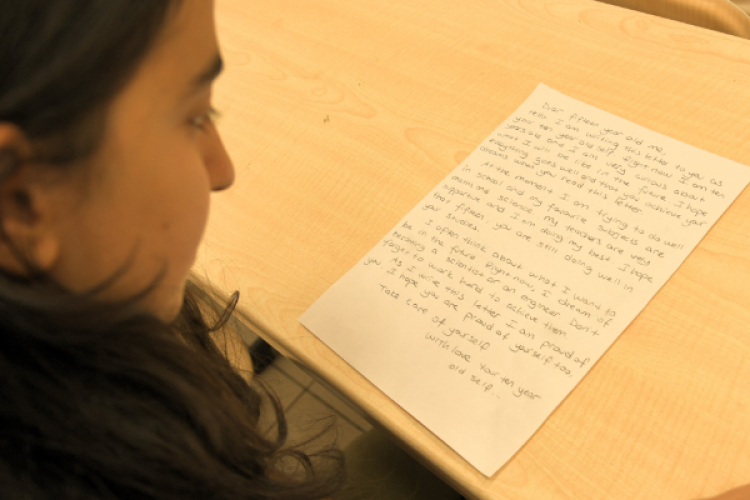 Dear fifteen year old me,
Hello I am writing this letter to you as
your ten year old self. Right now I am ten
years old and I am very curious about
what I will be like in the future. I hope
everything goes well and that you achieve your
dreams when you read this letter
At the moment I am trying to do well
in school and my favourite subjects are
maths and science. My teachers are very
supportive and I am doing my best. I hope
that fifteen, you are still doing well in
your studies.
I often think about what I want to
be in the future. Right now, I dream of
becoming a scientist or an engineer. Don't
forget to work hard to achieve them
As I write this letter I am proud of
you, I hope you are proud of yourself too.
Take care of yourself
With love Your ten year
old self...